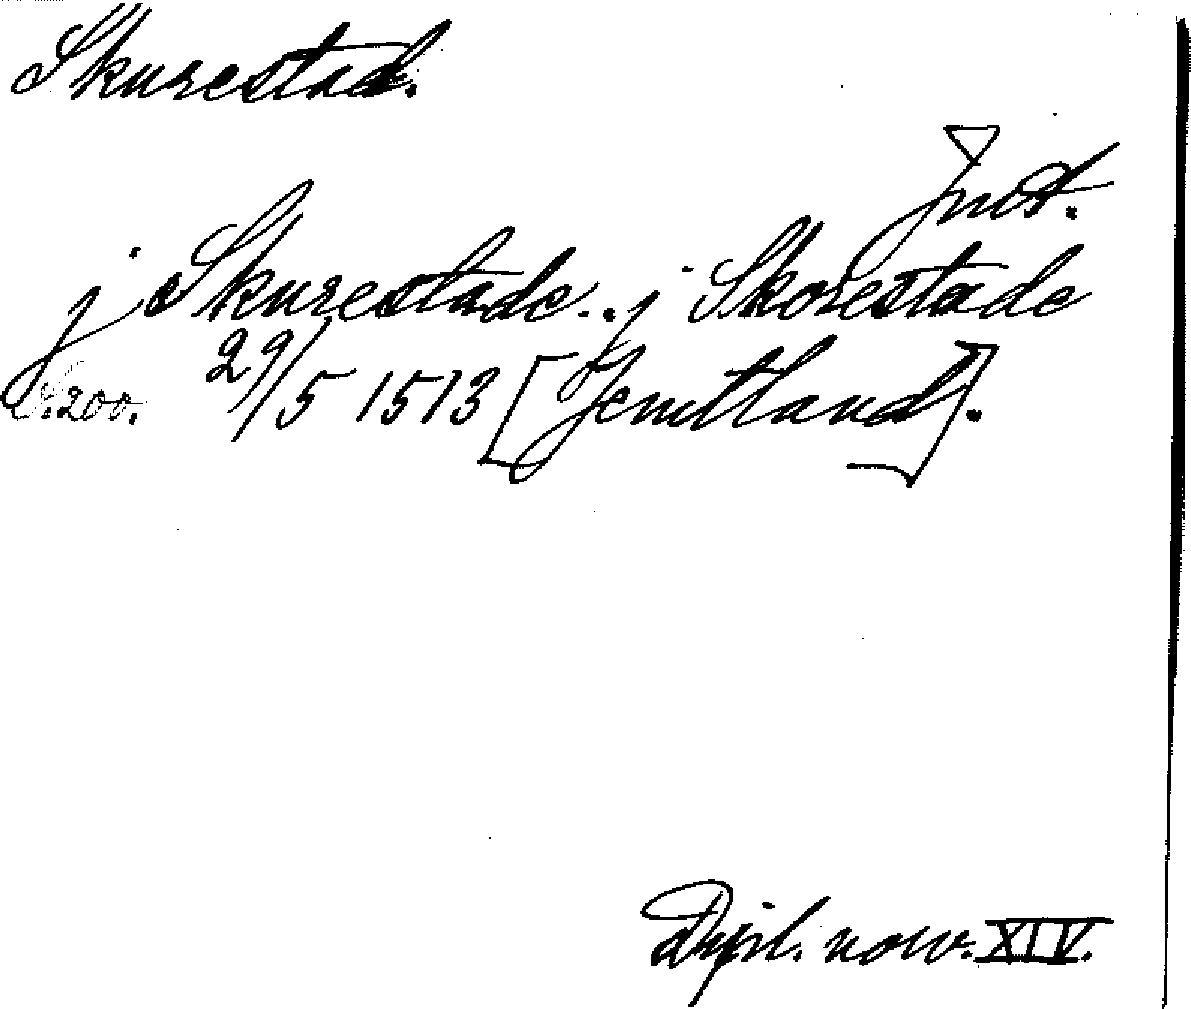 Skurestad.
Jmt.
j Skurestade. j Skorestade
S. 200. 29/5 1513 [Jemtland].
Dipl. norv. XIV.